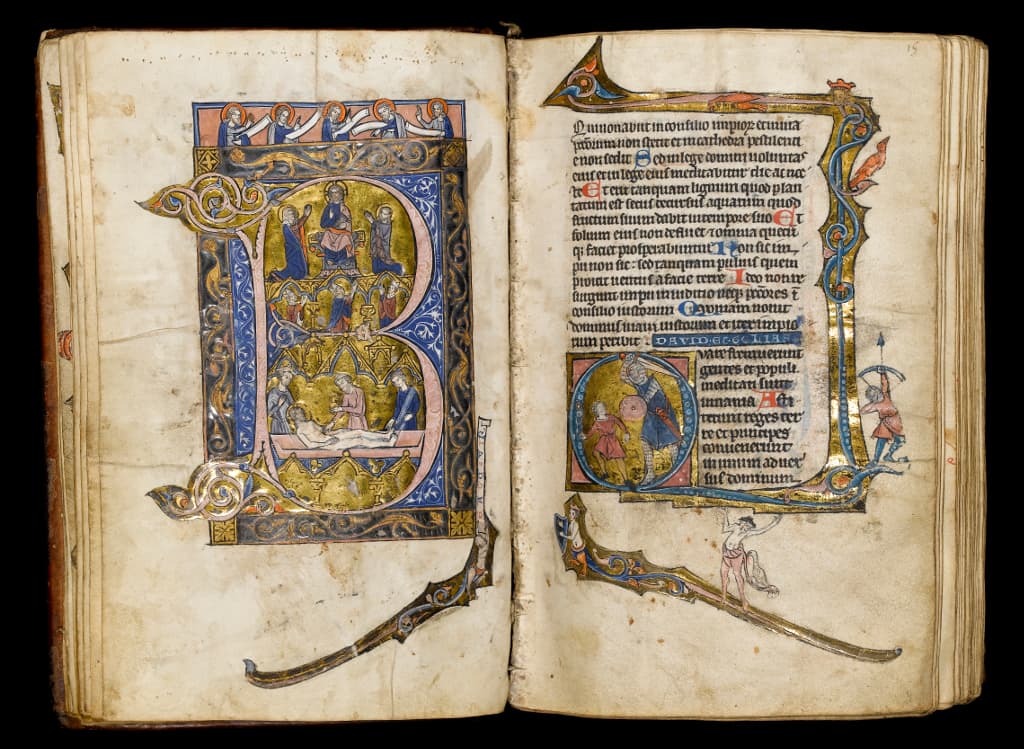 B
15
Qui non abiit in consilio impior et in uia
peccatorum non stetit et in cathedra pestilenti
e non sedit Sed in lege domini uoluntas
eius et in lege eius meditabitur die ac noc
te Et erit tanquam lignum quod plan
tatum est secus decursus aquarum quod
fructum suum dabit in tempore suo Et
folium eius non defluet et omnia quecun
q; faciet prosperabuntur Non sic im
pii non sic sed tanquam puluis quem
proicit uentus a facie terre Ideo non re
surgunt impii in iudicio neq; peccores i
consilio iustorum Quoniam nouit
dominus uiam iustorum et iter impio
rum peribit DAVID ET GOLIAS
Quare fremuerunt
gentes et populi
meditati sunt
inania Asti
terunt reges ter
re et principes
conuenerunt
in unum aduer
sus dominum